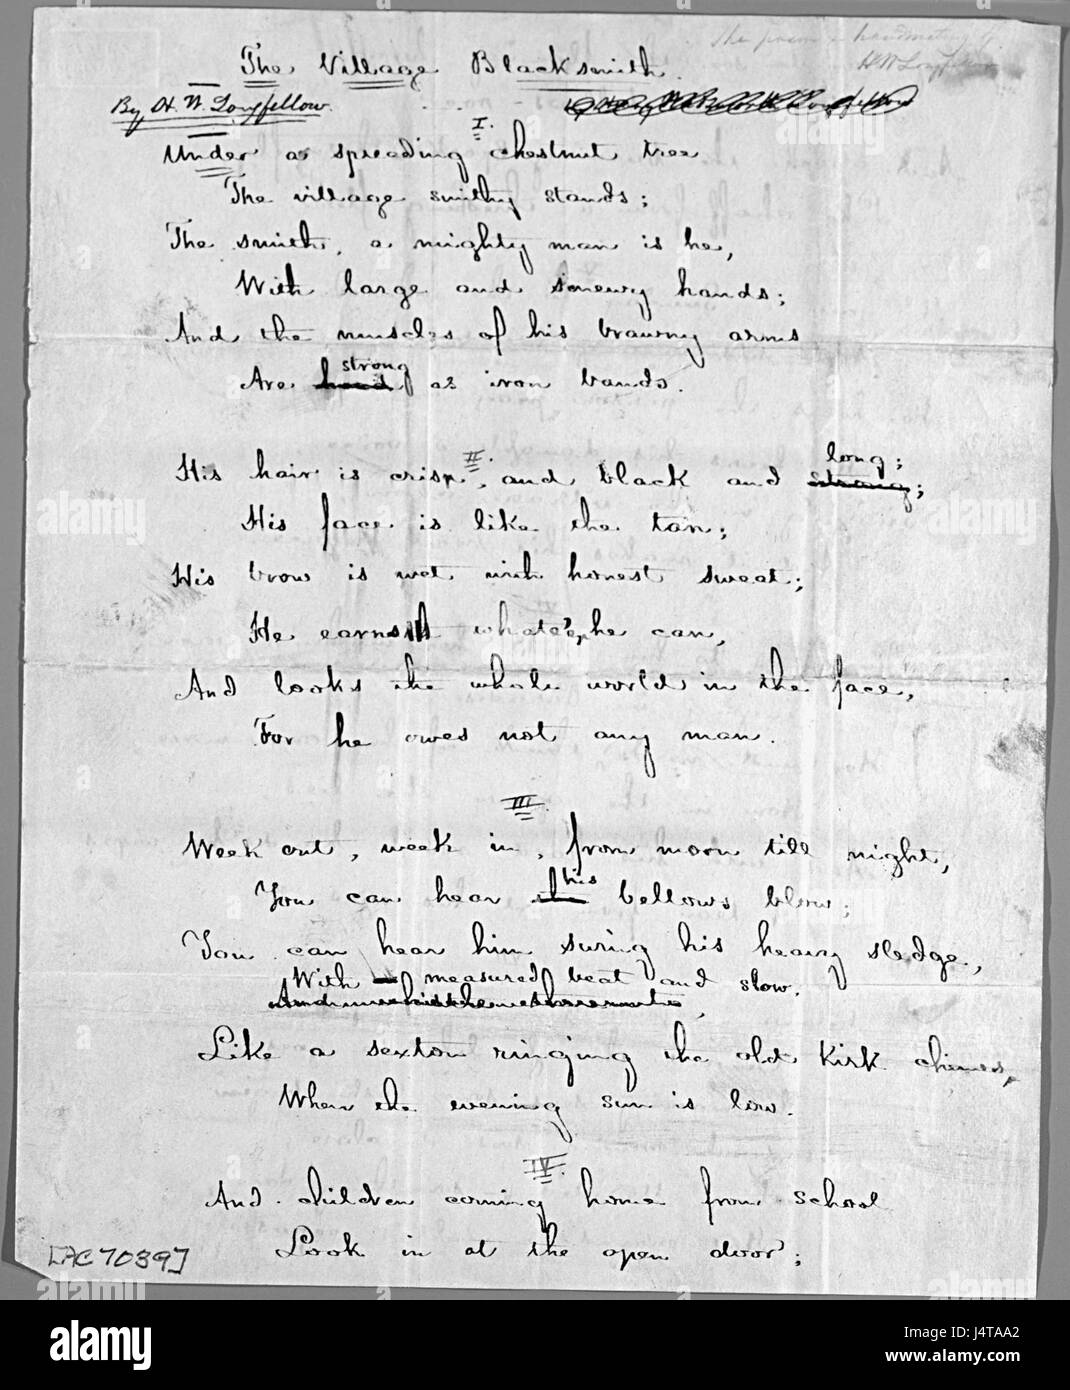 The poem in handwriting of
H W Longfellow
The Village Blacksmith.
By H. W. Longfellow.
I.
Under a spreading chestnut tree
The village smithy stands;
The smith, a mighty man is he,
With large and sinewy hands;
And the muscles of his brawny arms
strong
Are hard as iron bands.
II.
long;
His hair is crisp, and black and strong;
His face is like the tan;
His brow is wet with honest sweat;
He earns whate'er he can,
And looks the whole world in the face,
For he owes not any man.
III.
Week out, week in, from morn till night,
his
You can hear the bellows blow;
You can hear him swing his heavy sledge,
With measured beat and slow,
Like a sexton ringing the old kirk chimes,
When the evening sun is low.
IV.
And children coming home from school
Look in at the open door;
[AC 7039]
alamy
alamy
Image ID: J4TAA2
www.alamy.com